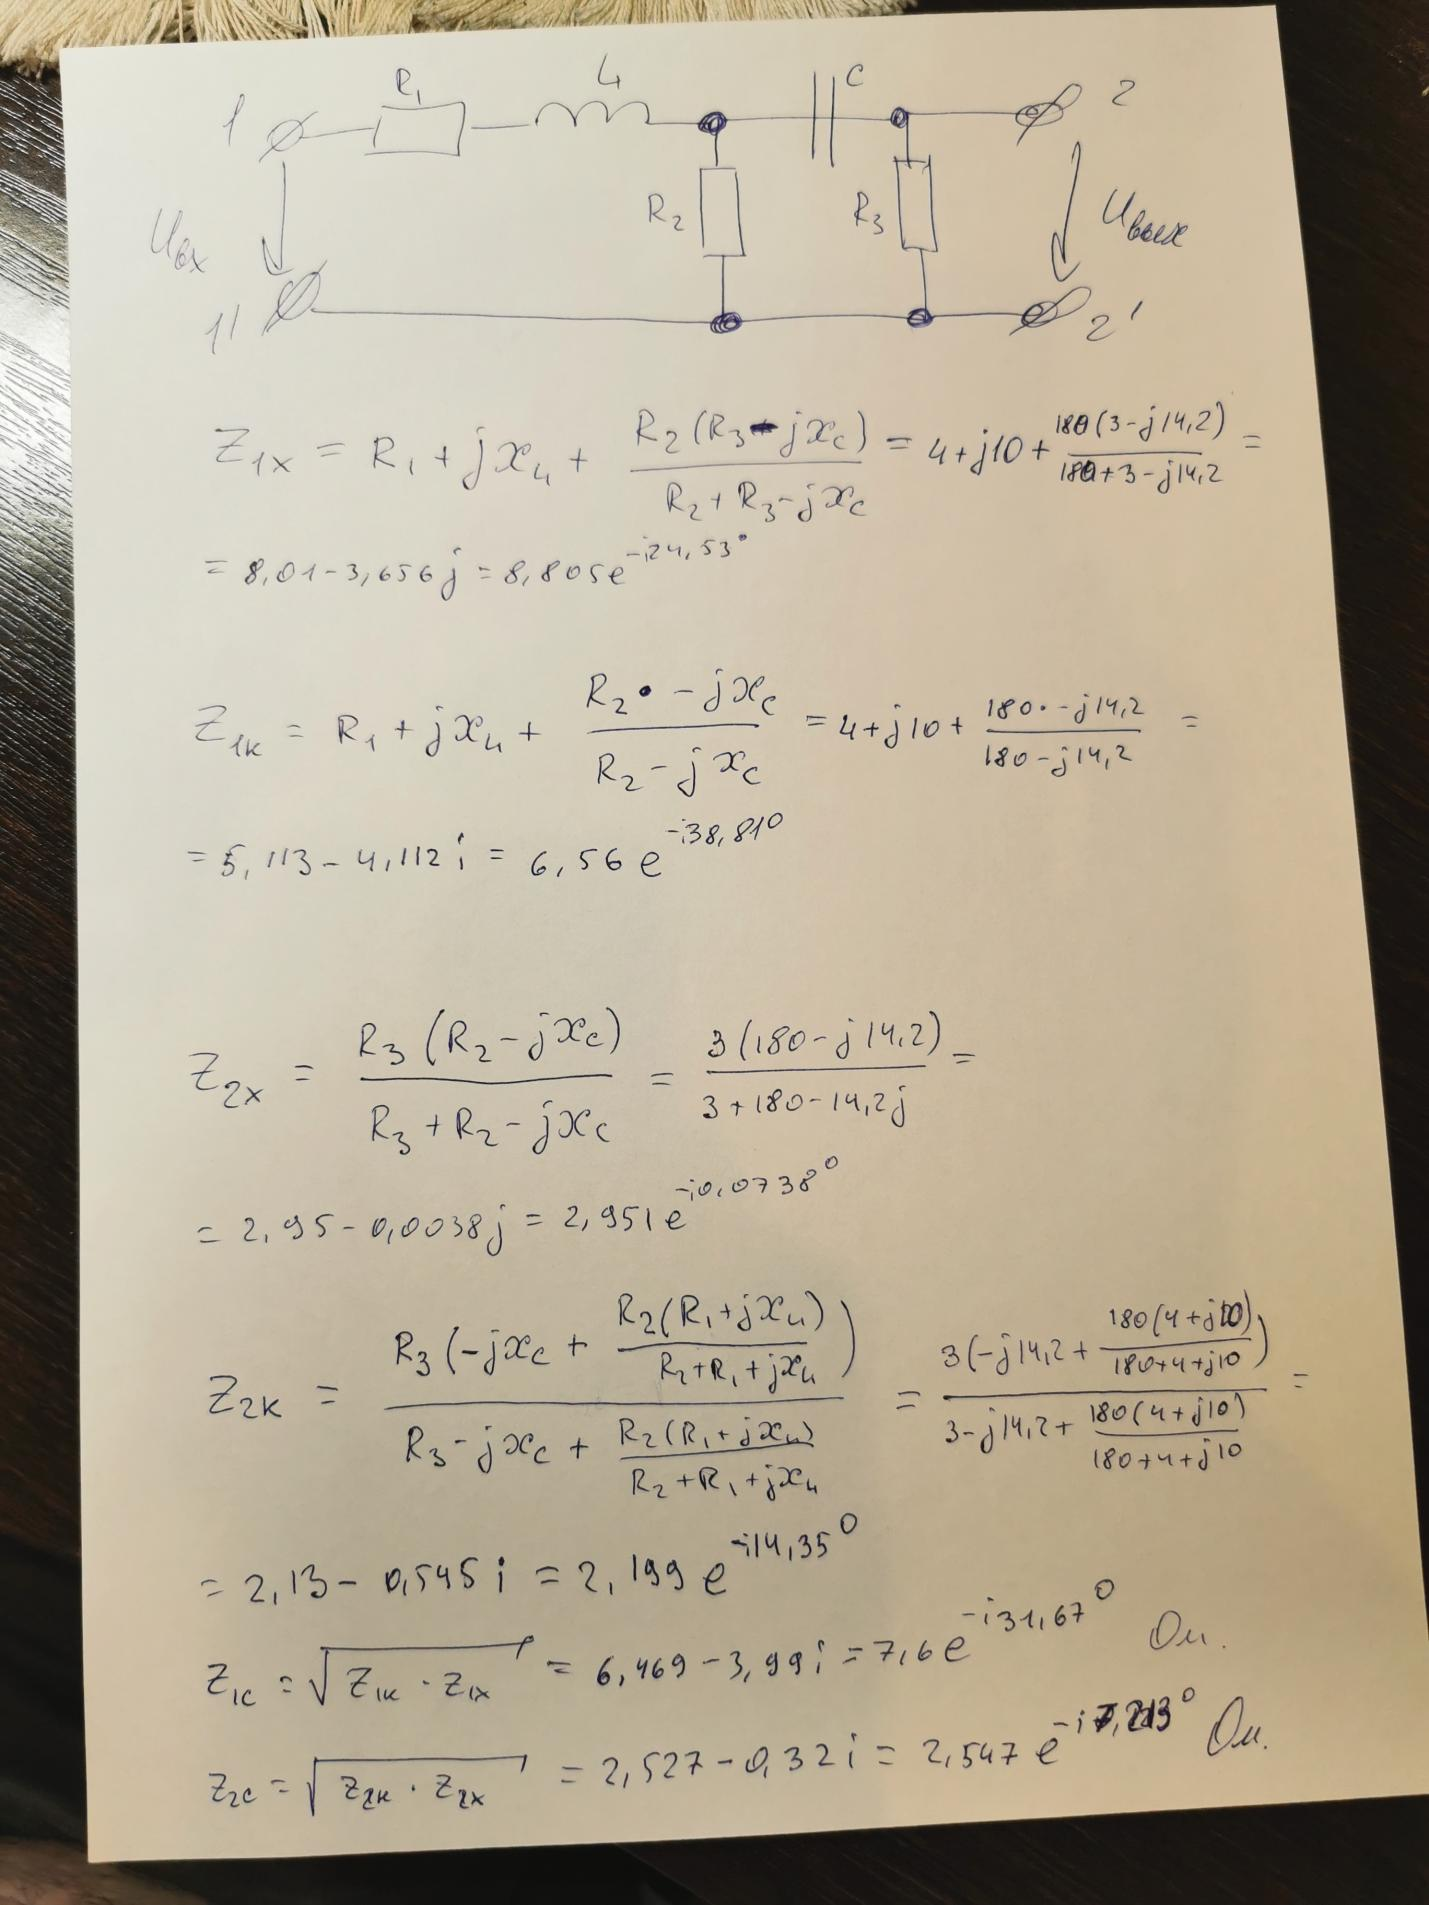 1 R₁ L C 2
Uвх R₂ R₃ Uвых
1' 2'
Z₁ₓ = R₁ + jxL + R₂(R₃ - jxc) / (R₂ + R₃ - jxc) = 4 + j10 + 180(3 - j14,2) / (180 + 3 - j14,2) =
= 8,01 - 3,656j = 8,805e^(-i24,53°)
Z₁к = R₁ + jxL + R₂ · -jxc / (R₂ - jxc) = 4 + j10 + 180 · -j14,2 / (180 - j14,2) =
= 5,113 - 4,112i = 6,56e^(-i38,81°)
Z₂ₓ = R₃(R₂ - jxc) / (R₃ + R₂ - jxc) = 3(180 - j14,2) / (3 + 180 - 14,2j) =
= 2,95 - 0,0038j = 2,951e^(-i0,0738°)
Z₂к = R₃(-jxc + R₂(R₁ + jxL) / (R₂ + R₁ + jxL)) / (R₃ - jxc + R₂(R₁ + jxL) / (R₂ + R₁ + jxL)) = 3(-j14,2 + 180(4 + j10) / (180 + 4 + j10)) / (3 - j14,2 + 180(4 + j10) / (180 + 4 + j10)) =
= 2,13 - 0,545i = 2,199e^(-i14,35°)
Z₁c = √(Z₁к · Z₁ₓ) = 6,469 - 3,99i = 7,6e^(-i31,67°) Ом.
Z₂c = √(Z₂к · Z₂ₓ) = 2,527 - 0,32i = 2,547e^(-i7,213°) Ом.